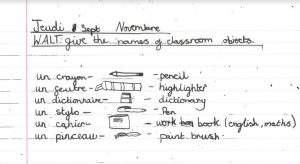 Jeudi Sept Novembre
WALT: give the names of classroom objects.
un crayon - - pencil
un feutre - - highlighter
un dictionnaire - - dictionary
un stylo - - Pen
un cahier - - work book (english, maths)
un pinceau - - paint brush